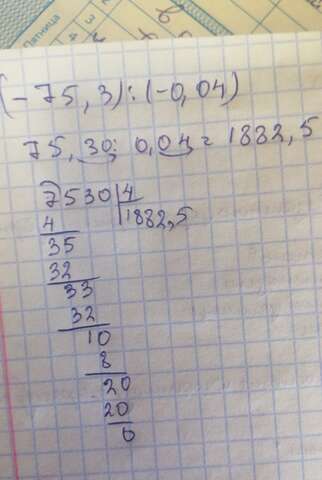 Пятница
(-75,3):(-0,04)
75,30:0,04=1882,5
7530|4
4 1882,5
35
32
33
32
10
8
20
20
0